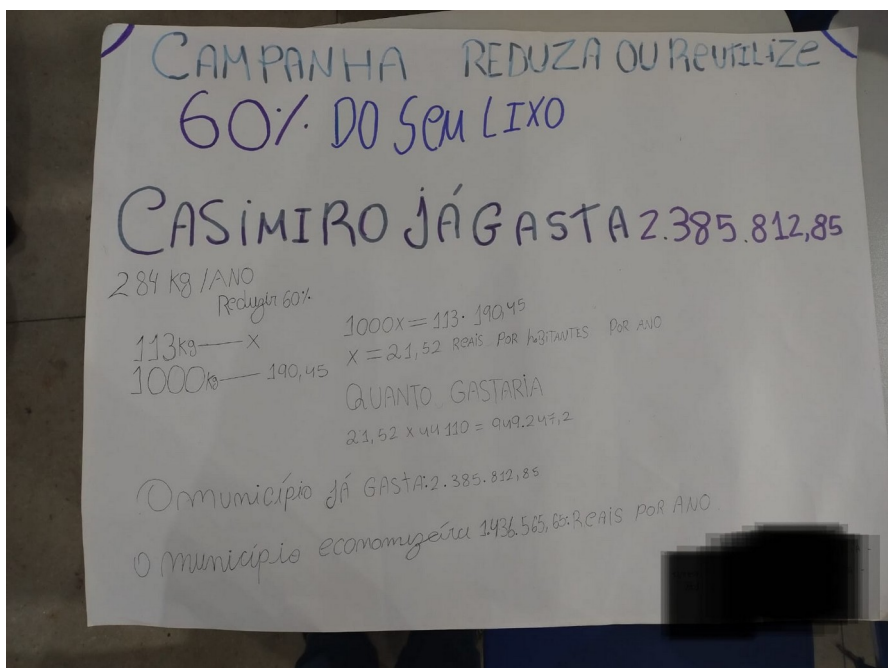 CAMPANHA REDUZA OU ReUTiLiZe
60% DO SeU LIXO
CASiMIRO JÁ GASTA 2.385.812,85
284 Kg/ANO
Reduzir 60%
113Kg — X
1000Kg — 190,45
1000x = 113 · 190,45
X = 21,52 ReAiS POR hABITANTES POR ANO
QUANTO GASTARIA
21,52 x 44110 = 949.247,2
O município JÁ GASTA: 2.385.812,85
O município economizeira 1.436.565,65 ReAiS POR ANO